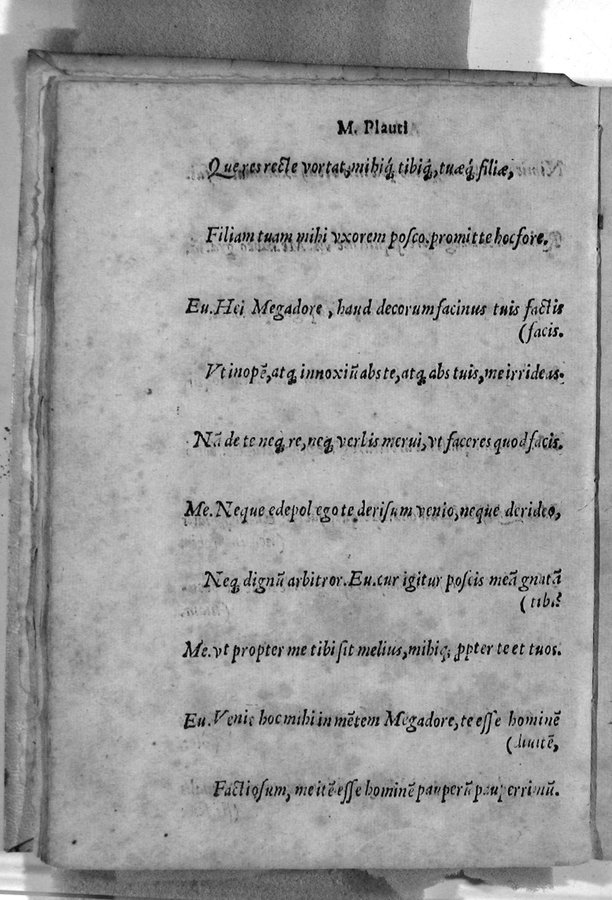 M. Plauti
Que res recte vortat, mihiq́; tibiq́;, tuæq́; filiæ,
Filiam tuam mihi vxorem posco. promitte hoc fore.
Eu. Hei Megadore, haud decorum facinus tuis factis
(facis.
Vt inopẽ, atq; innoxiũ abs te, atq; abs tuis, me irrideas.
Nã de te neq; re, neq; verbis merui, vt faceres quod facis.
Me. Neque edepol ego te derisum venio, neque derideo,
Neq; dignũ arbitror. Eu. cur igitur poscis meã gnatã
(tibi?
Me. vt propter me tibi sit melius, mihiq; ꝓpter te et tuos.
Eu. Venit hoc mihi in mẽtem Megadore, te esse hominẽ
(diuitẽ,
Factiosum, me itẽ esse hominẽ pauperũ pauperrimũ.